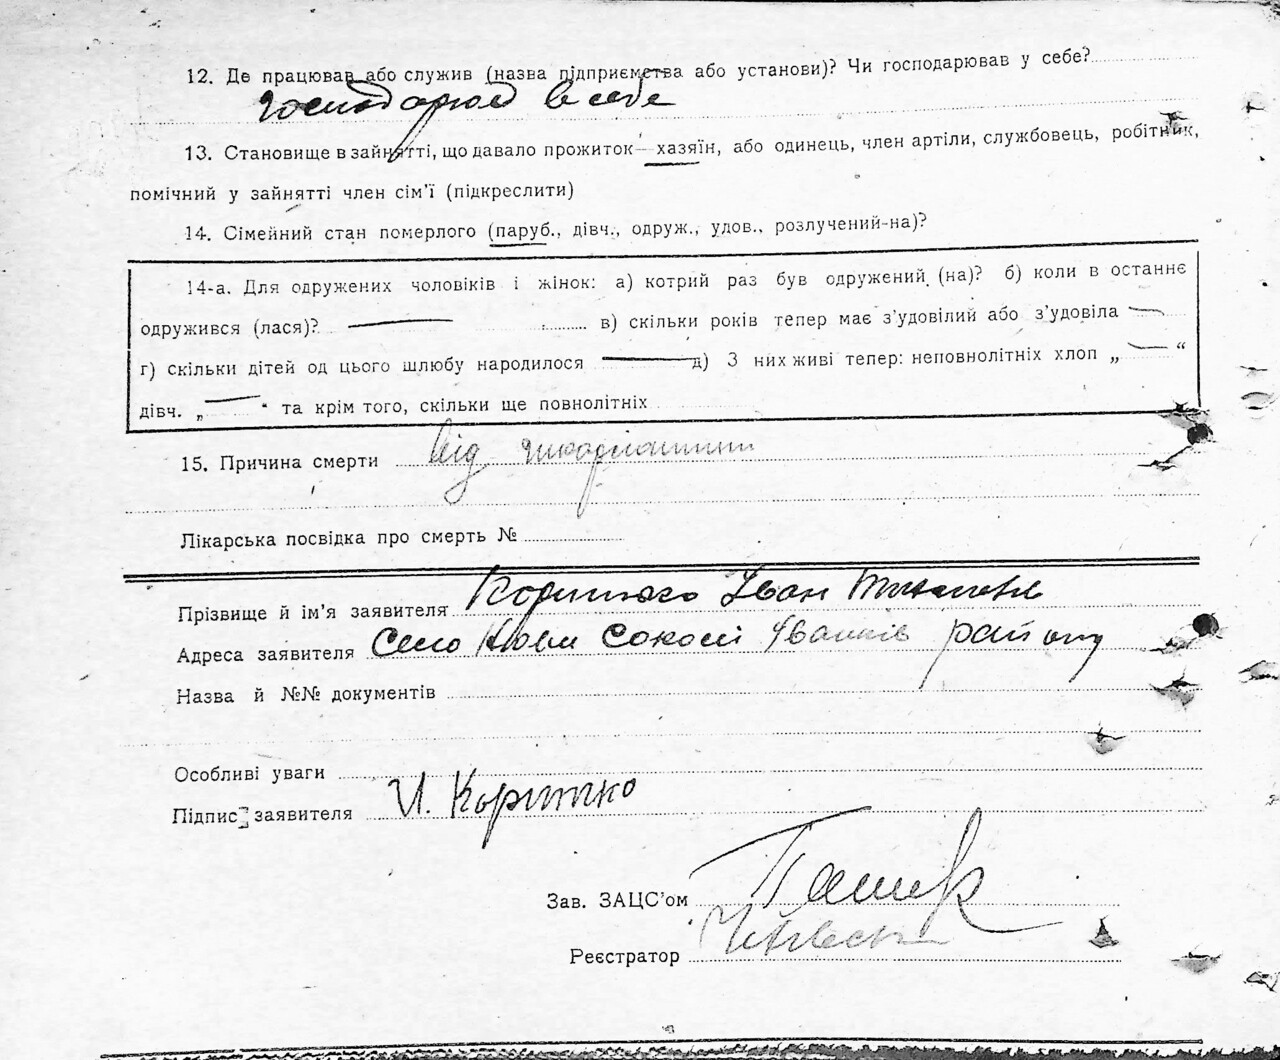 12. Де працював або служив (назва підприємства або установи)? Чи господарював у себе?
господарював в себе
13. Становище в зайнятті, що давало прожиток — хазяїн, або одинець, член артіли, службовець, робітник,
помічний у зайнятті член сім'ї (підкреслити)
14. Сімейний стан померлого (паруб., дівч., одруж., удов., розлучений-на)?
14-а. Для одружених чоловіків і жінок: а) котрий раз був одружений (на)? б) коли в останнє
одружився (лася)? — в) скільки років тепер має з'удовілий або з'удовіла —
г) скільки дітей од цього шлюбу народилося — д) З них живі тепер: неповнолітніх хлоп „ — “
дівч. „ — “ та крім того, скільки ще повнолітніх
15. Причина смерти від шкарлатини
Лікарська посвідка про смерть №
Прізвище й ім'я заявителя Коритко Іван
Адреса заявителя Село Нові Соколи Іванків району
Назва й №№ документів
Особливі уваги
Підпис заявителя И. Коритко
Зав. ЗАЦС'ом
Реєстратор